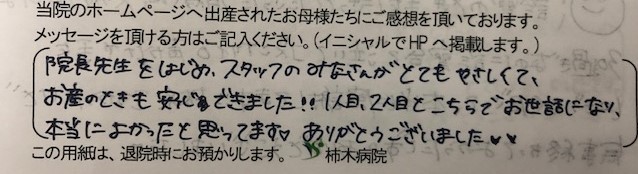 当院のホームページへ出産されたお母様たちにご感想を頂いております。
メッセージを頂ける方はご記入ください。(イニシャルでHPへ掲載します。)
院長先生をはじめ、スタッフのみなさんがとてもやさしくて、
お産のときも安心できました!! 1人目、2人目とこちらでお世話になり、
本当によかったと思ってます♡ ありがとうございました♥♥
この用紙は、退院時にお預かりします。 柿木病院